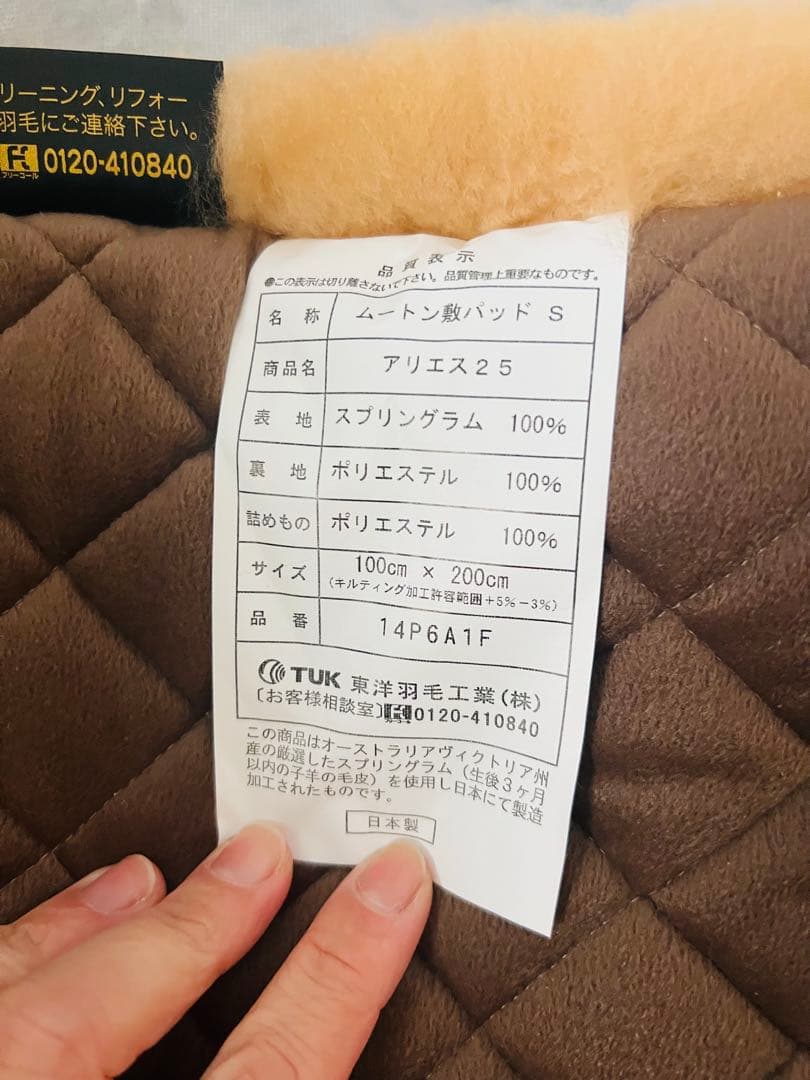 リーニング、リフォー
羽毛にご連絡下さい。
フリーコール 0120-410840
品質表示
●この表示は切り離さないで下さい。品質管理上重要なものです。
名 称 ムートン敷パッド S
商品名 アリエス25
表 地 スプリングラム 100%
裏 地 ポリエステル 100%
詰めもの ポリエステル 100%
サイズ 100cm × 200cm
(キルティング加工許容範囲+5%-3%)
品 番 14P6A1F
TUK 東洋羽毛工業(株)
〔お客様相談室〕0120-410840
この商品はオーストラリアヴィクトリア州
産の厳選したスプリングラム(生後3ヶ月
以内の子羊の毛皮)を使用し日本にて製造
加工されたものです。
日本製